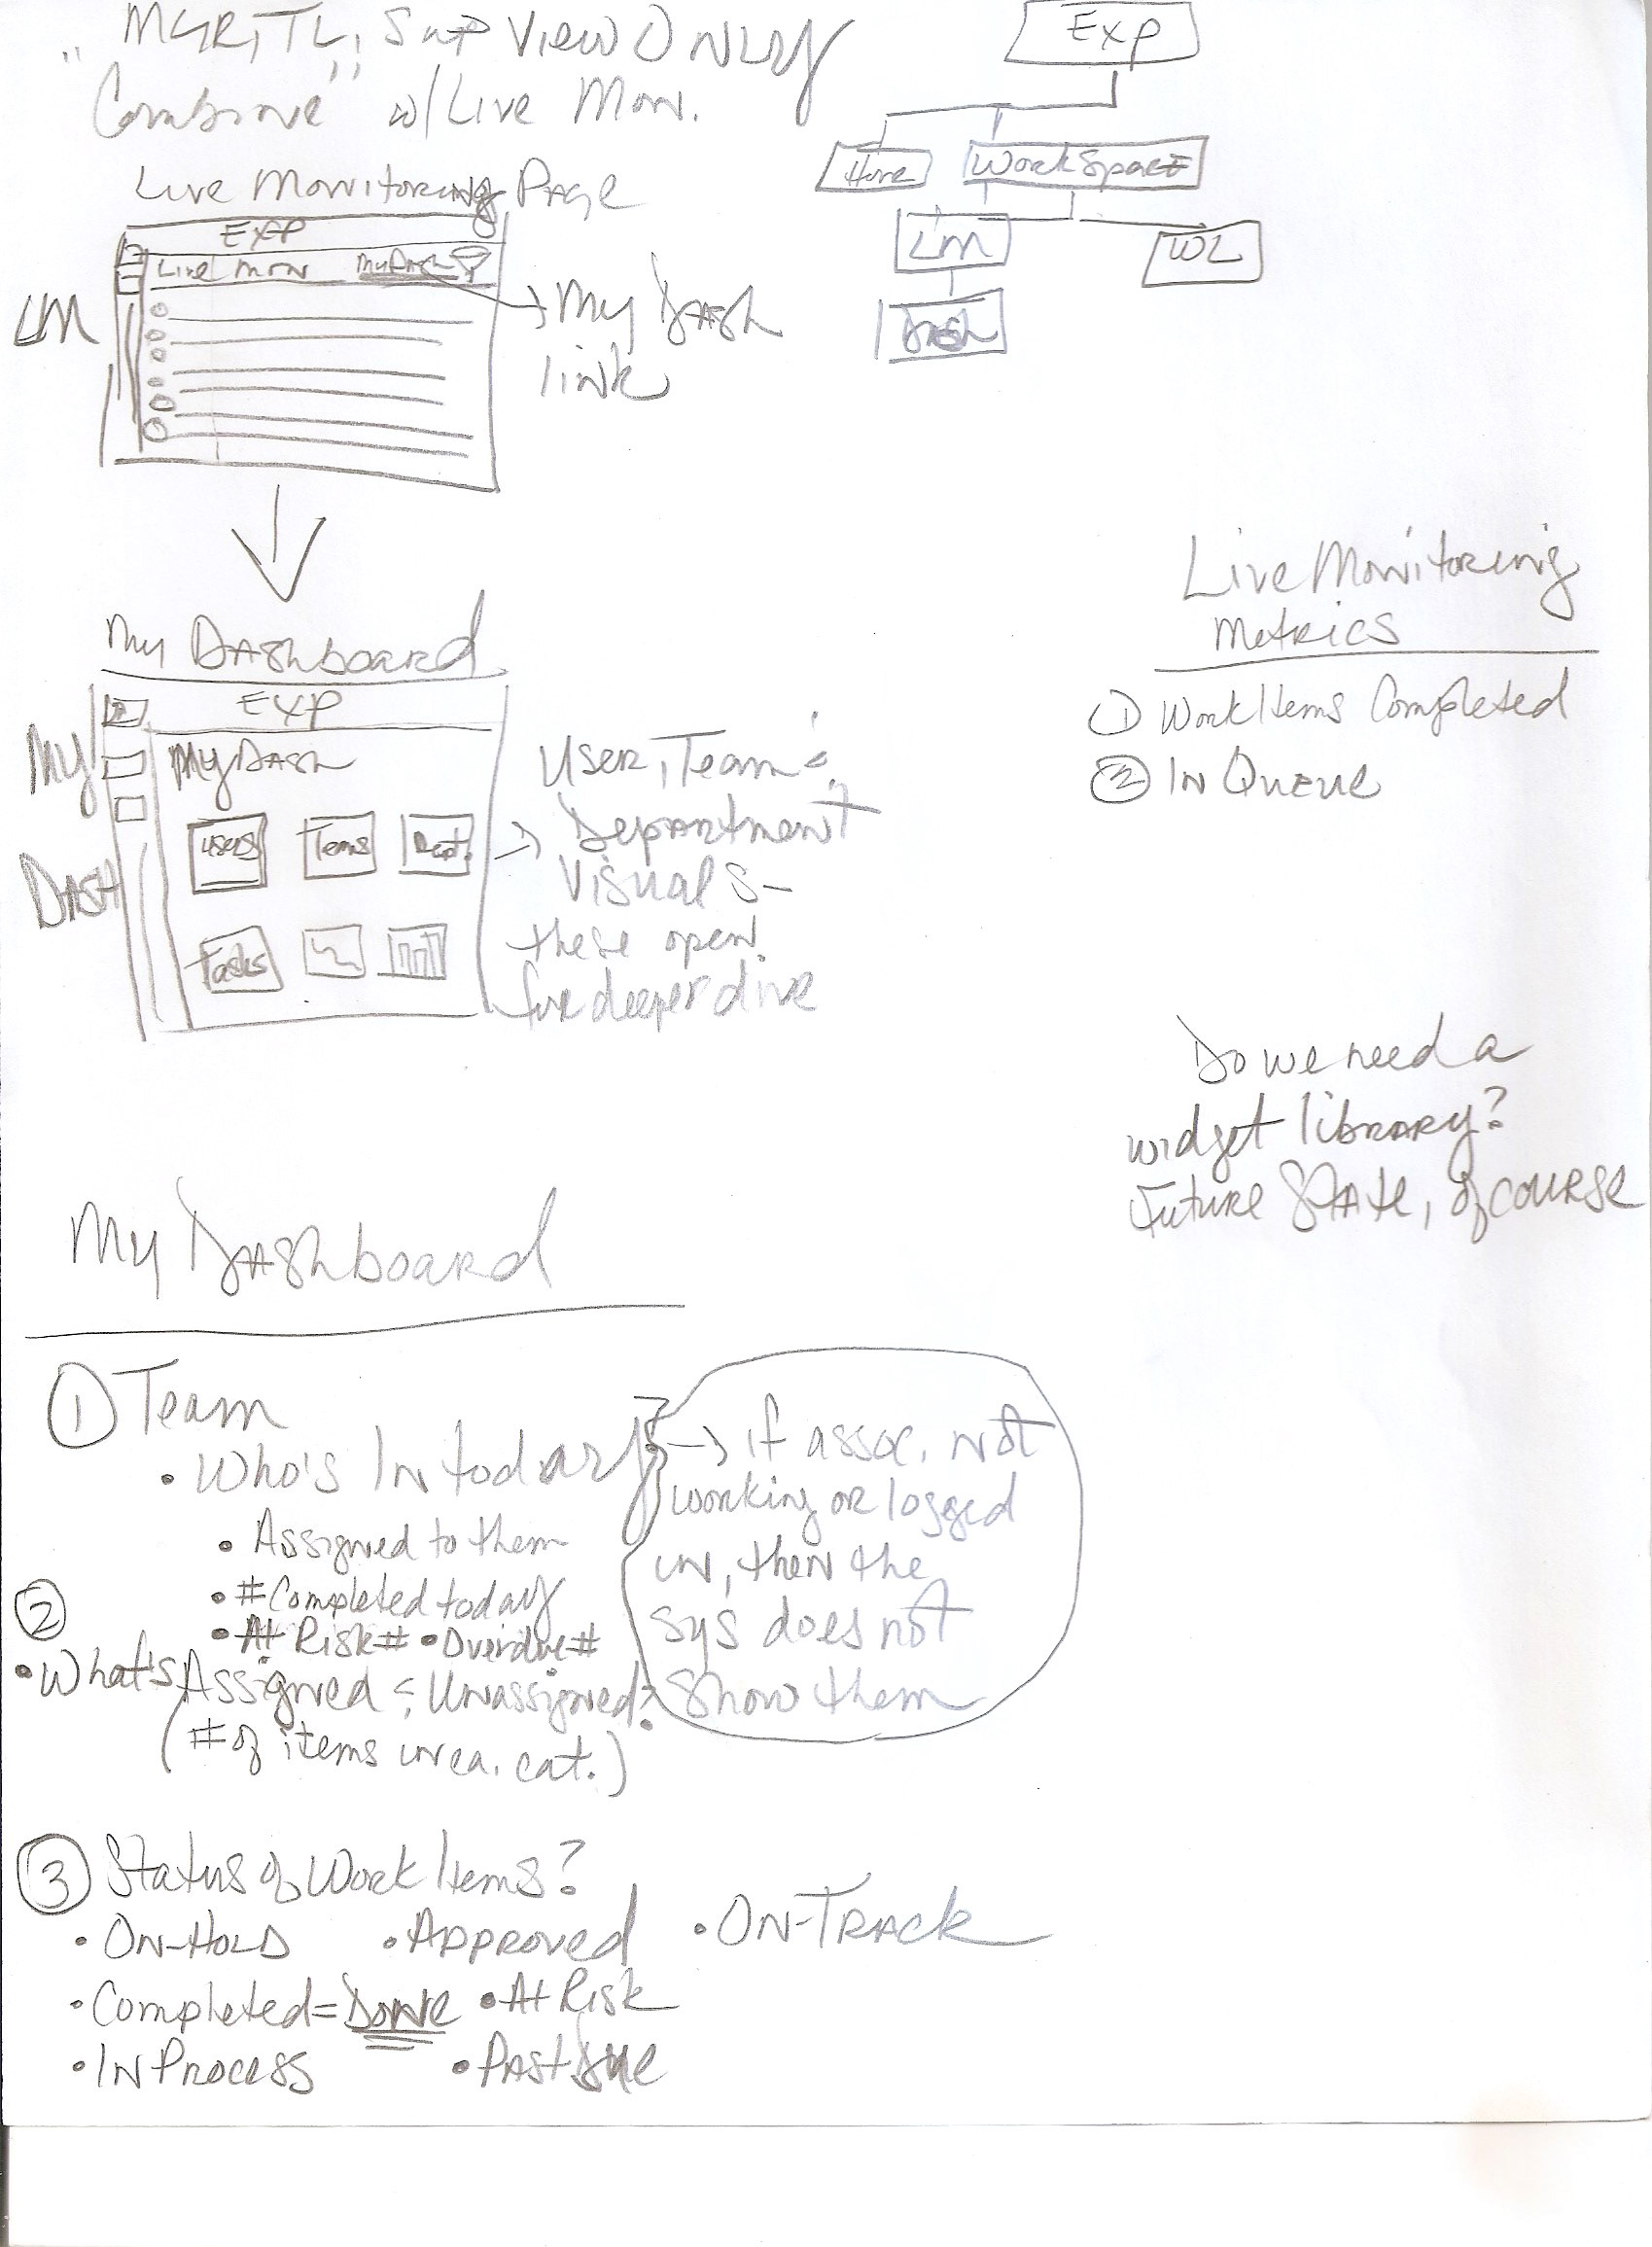 MGR, TL, Sup View Only
"Combine" w/ Live Mon.
Live Monitoring Page
EXP
Live Mon MyDash
LM
My Dash
link
EXP
Home WorkSpace
LM WL
Dash
My Dashboard
EXP
My Dash
My Dash
Users Teams Dept.
Tasks
User, Team &
Department
Visuals -
these open
for deeper dive
Live Monitoring
Metrics
① Work Items Completed
② In Queue
Do we need a
widget library?
Future State, of course
My Dashboard
① Team
• Who's In today?
• Assigned to them
• # Completed today
• At Risk # • Overdue #
→ if assoc. not
working or logged
in, then the
sys does not
show them
②
• What's Assigned & Unassigned?
(# of items in ea. cat.)
③ Status of Work Items?
• On-Hold • Approved • On-Track
• Completed = Done • At Risk
• In Process • Past Due